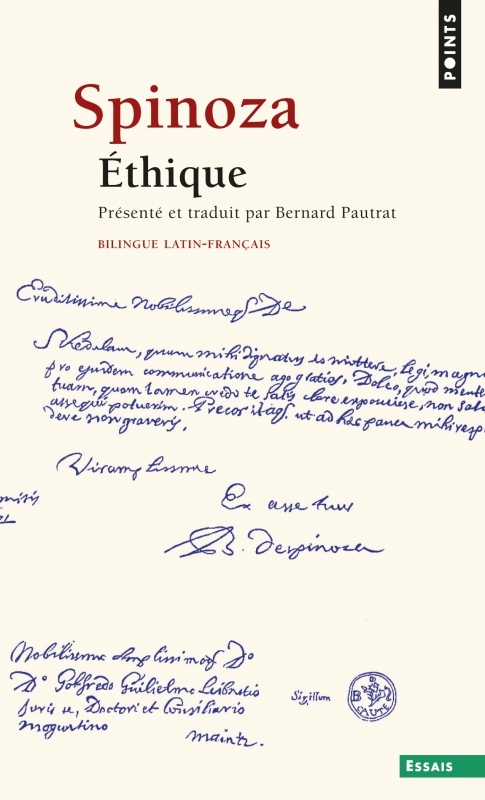 POINTS
Spinoza
Éthique
Présenté et traduit par Bernard Pautrat
BILINGUE LATIN-FRANÇAIS
Eruditissime Nobilissimeqȝ De
Schedulam, quam mihi dignatus es mittere, legi, magn
pro ejusdem communicatione ago gratias. Doleo, quod mente
tuam, quam tamen credo te satis clare exposuisse, non sat
assequi potuerim. Precor itaqȝ ut ad haec pauca mihi resp
dere non graveris.
Viramplissime
Ex asse tuus
B. despinoza
Nobilissimo Amplissimoqȝ Do
Do Gotfredo Guilielmo Leibnitio
Juris u, Doctori et Consiliario
Moguntino
Maintz.
Sigillum
B D S
CAUTE
ESSAIS